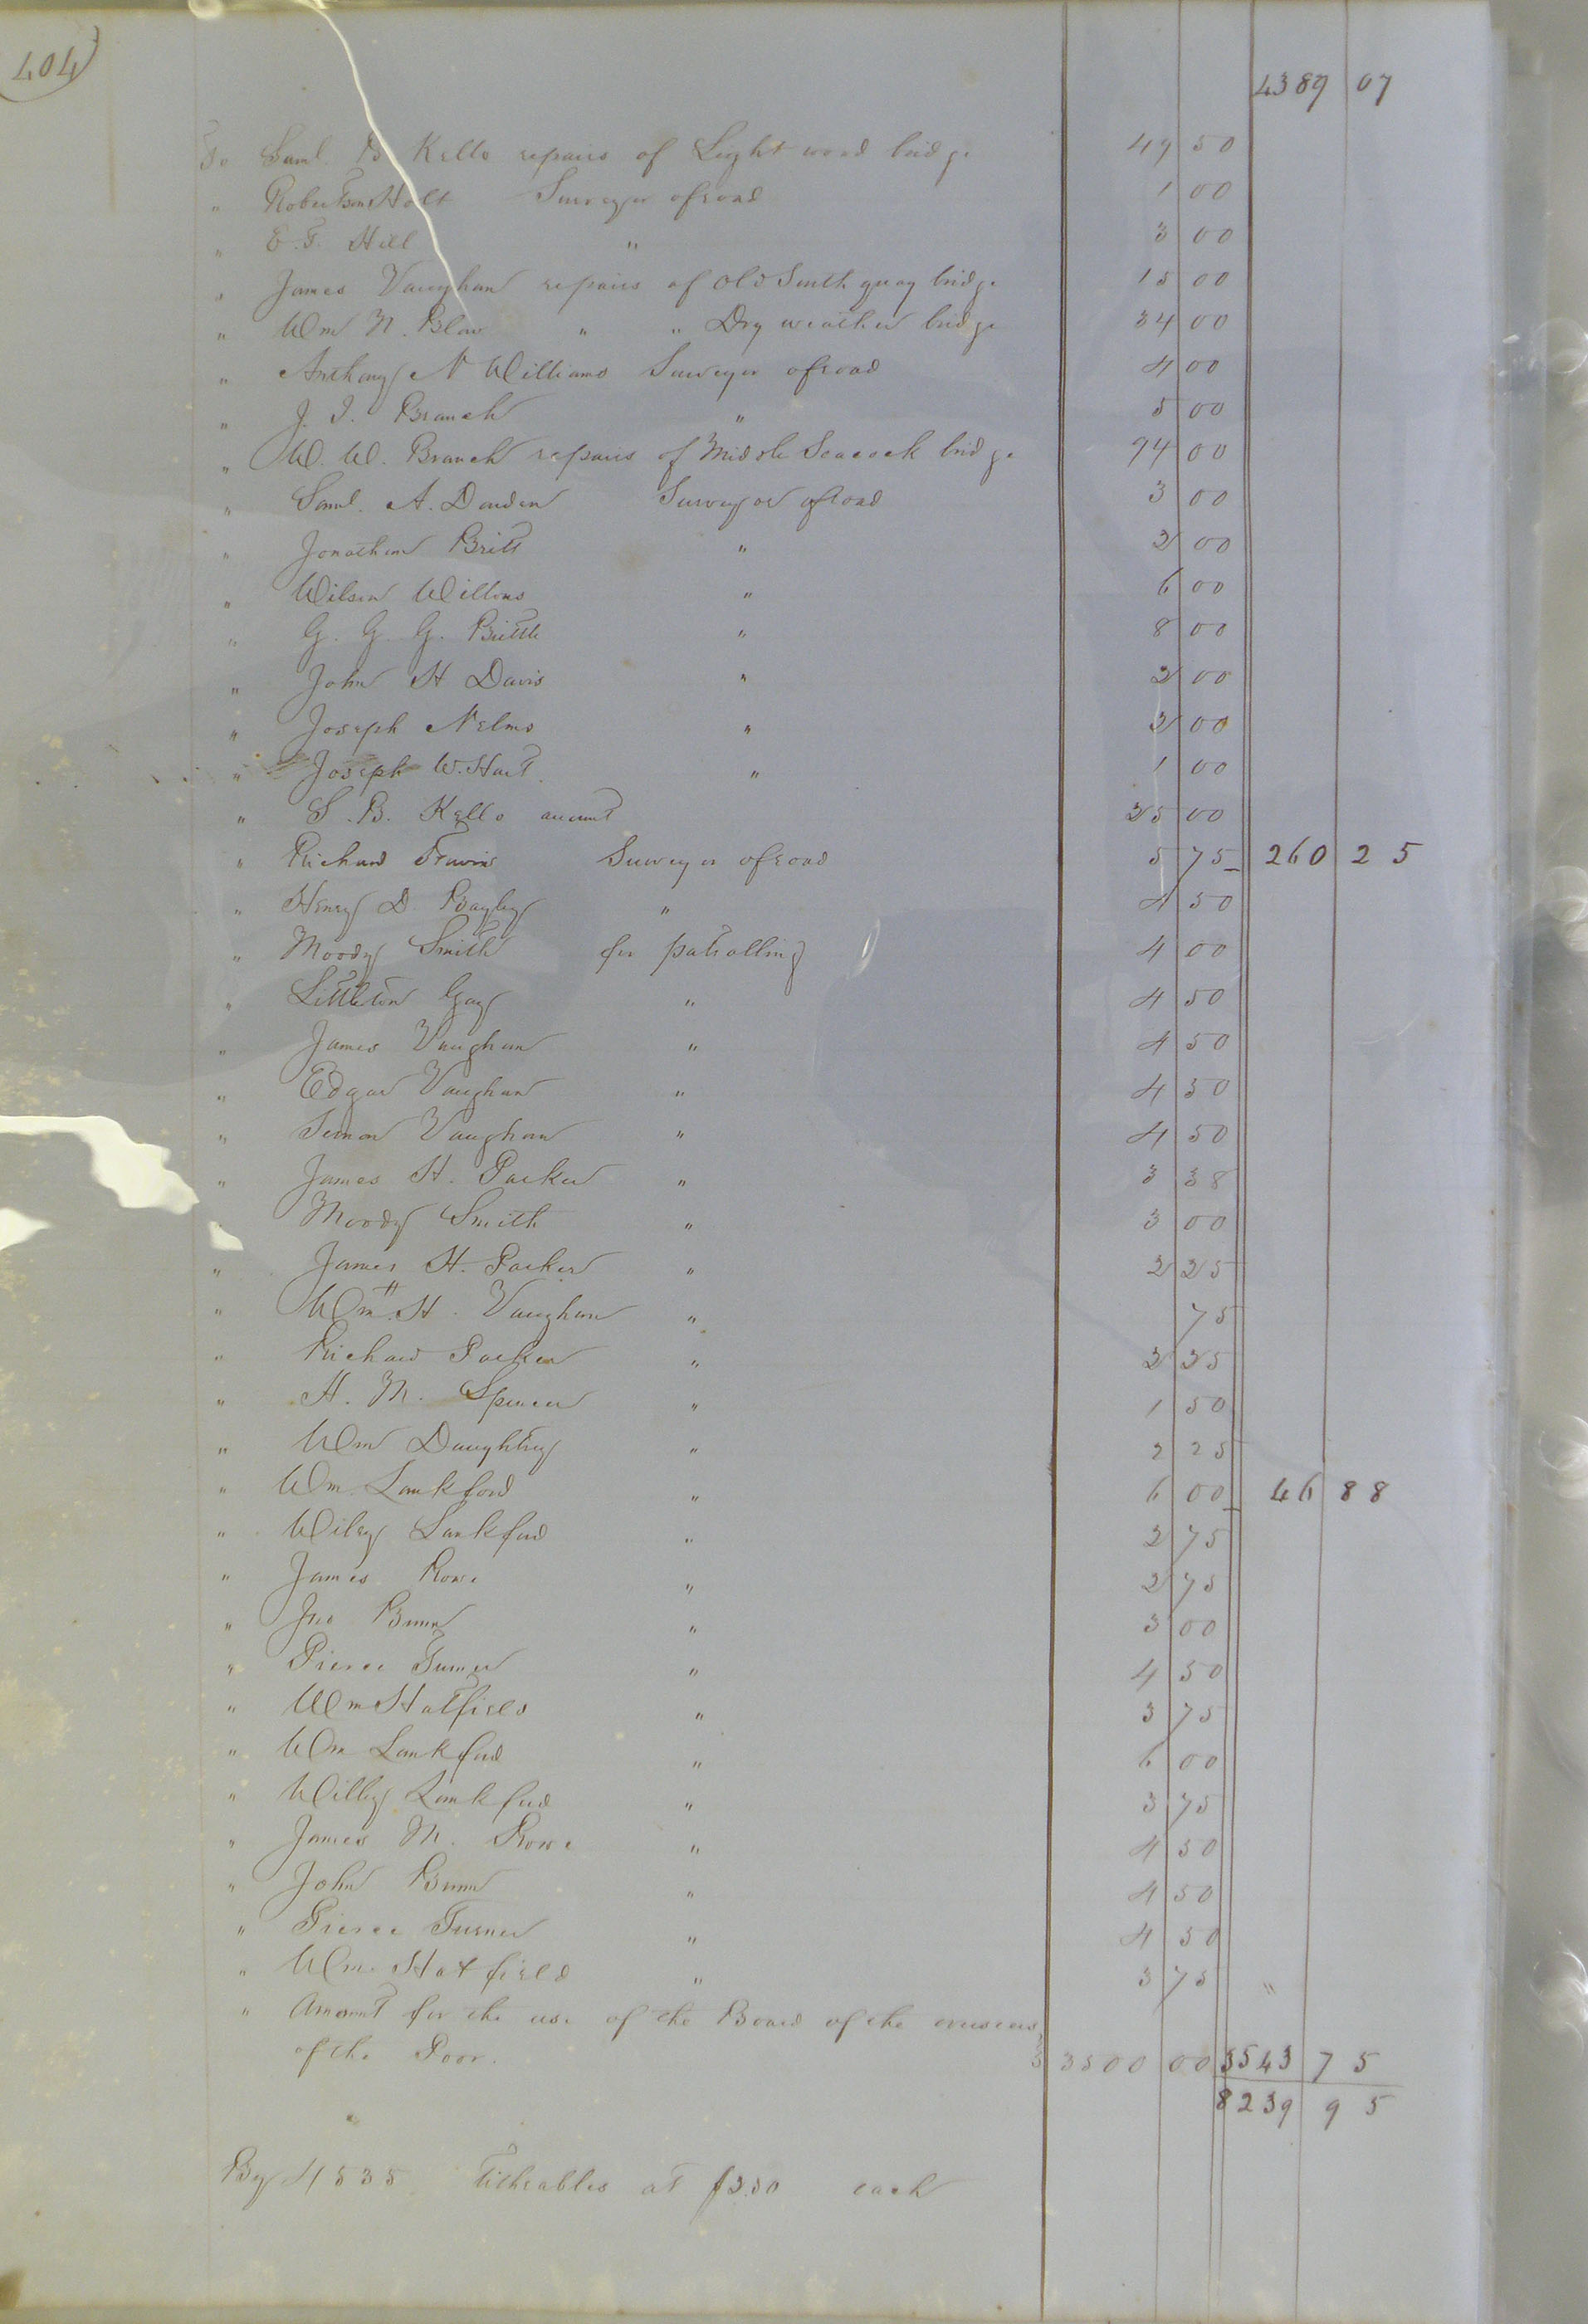 404
4389 07
To Saml. B Kello repairs of Light wood bridge 49 50
" Robertson Holt Surveyor of road 1 00
" E. T. Hill " 3 00
" James Vaughan repairs of Old South quay bridge 15 00
" Wm N. Blow " " Dry weather bridge 34 00
" Anthony N Williams Surveyor of road 4 00
" J. I. Branch " 5 00
" W. W. Branch repairs of Middle Seacock bridge 94 00
" Saml. A. Darden Surveyor of road 3 00
" Jonathan Britt " 2 00
" Wilson Willons " 6 00
" G. G. G. Brittle " 8 00
" John H Davis " 2 00
" Joseph Nelms " 2 00
" Joseph W. Hart " 1 00
" S. B. Kello amount 25 00
" Richard Travis Surveyor of road 5 75 260 25
" Henry D Bagley " 4 50
" Moody Smith for patrolling 4 00
" Littleton Gay " 4 50
" James Vaughan " 4 50
" Edgar Vaughan " 4 50
" Simon Vaughan " 4 50
" James H. Parker " 3 38
" Moody Smith " 3 00
" James H. Parker " 2 25
" Wm. H. Vaughan " 75
" Richard Parker " 2 25
" H. M. Spencer " 1 50
" Wm Daughtry " 2 25
" Wm. Lankford " 6 00 46 88
" Wiley Lankford " 2 75
" James Rowe " 2 75
" Jno Bunn " 3 00
" Pierce Turner " 4 50
" Wm Hatfield " 3 75
" Wm Lankford " 6 00
" Willey Lankford " 3 75
" James M. Rowe " 4 50
" John Bunn " 4 50
" Pierce Turner " 4 50
" Wm. Hatfield " 3 75 "
" Amount for the use of the Board of the overseers
of the Poor. 3500 00 3543 75
8239 95
By 4535 Titheables at $2.50 each